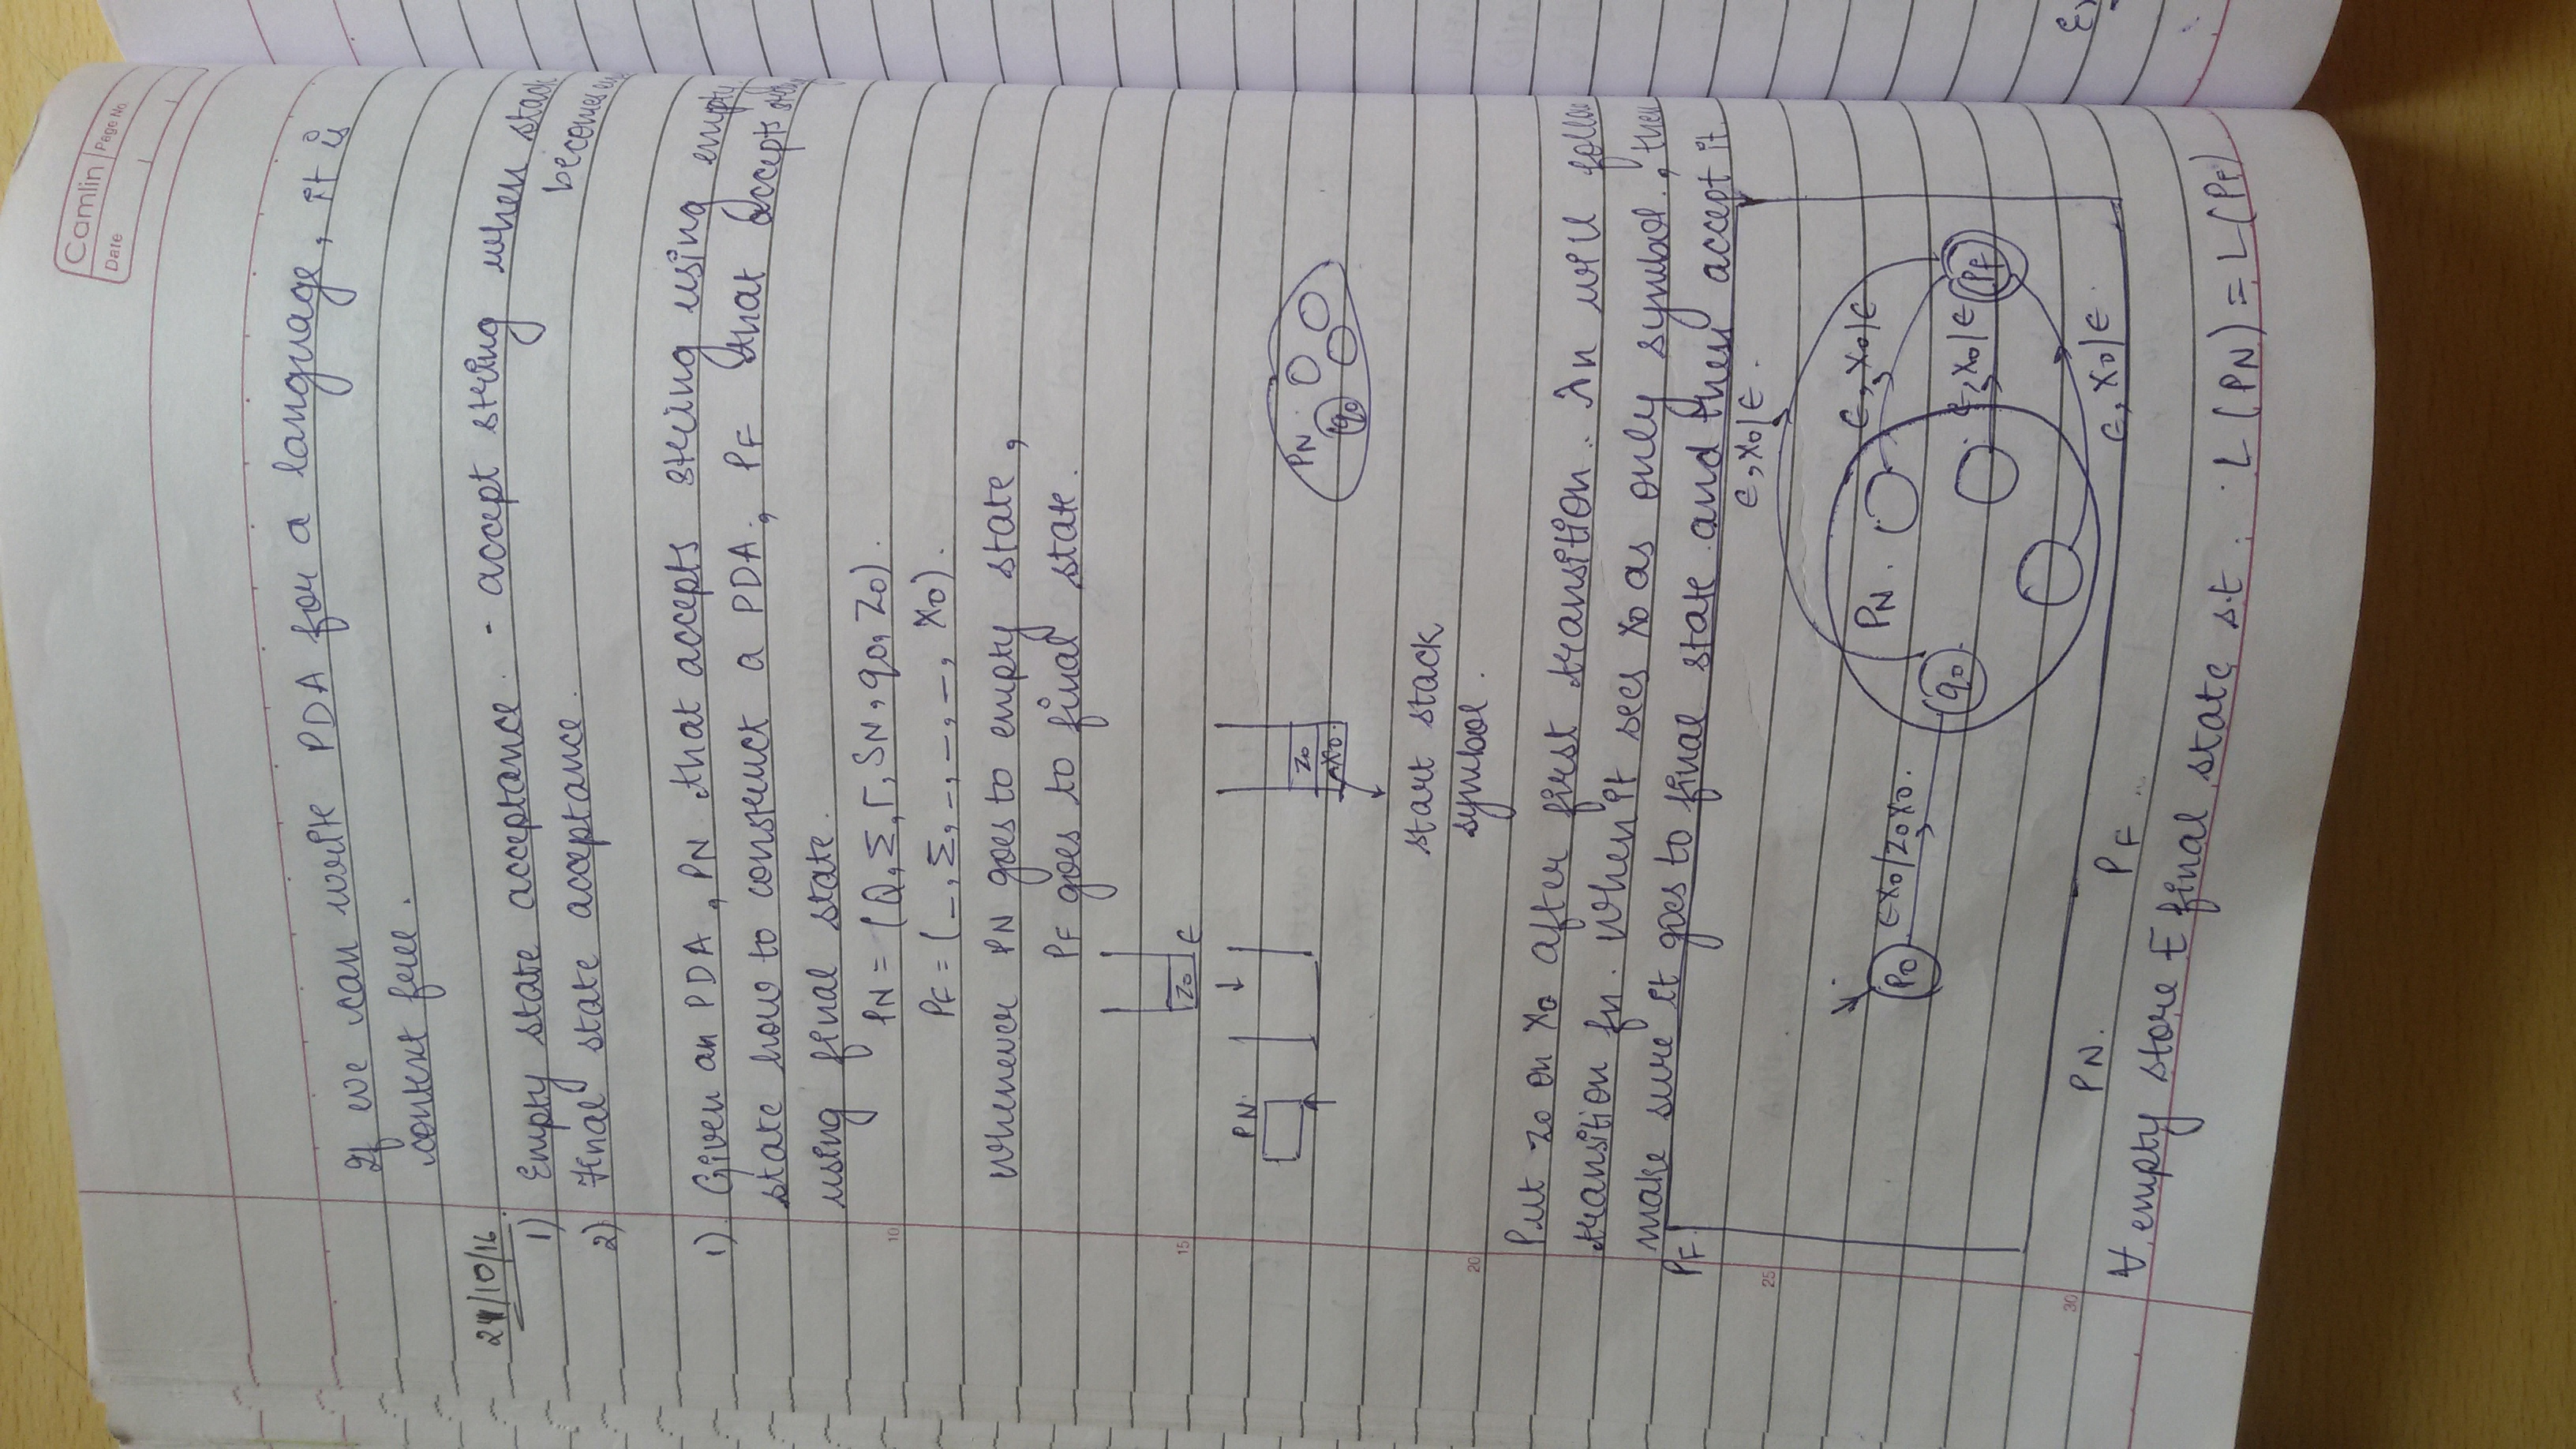 Camlin
Page No.
Date
If we can write PDA for a language, it is
context free.
24/10/16
1) Empty state acceptance. - accept string when stack
becomes
2) Final state acceptance.
1) Given an PDA, PN that accepts string using empty
state how to construct a PDA, PF that accepts
using final state.
PN = (Q, Σ, Γ, δN, q0, Z0).
10
PF = (_, Σ, _, _, _, X0).
Whenever PN goes to empty state,
PF goes to final state.
Z0 ε
15
PN.
Z0
X0.
PN.
q0
start stack
symbol.
20
Put Z0 on X0 after first transition. will follow
transition fn. When it sees X0 as only symbol, then
make sure it goes to final state and then accept it.
PF.
25
ε, X0/ε.
P0
εX0/Z0X0.
PN.
q0
ε, X0/ε
ε, X0/ε
PF
ε, X0/ε.
30
PN. PF
∀ empty store ∃ final state s.t. L(PN) = L(PF)